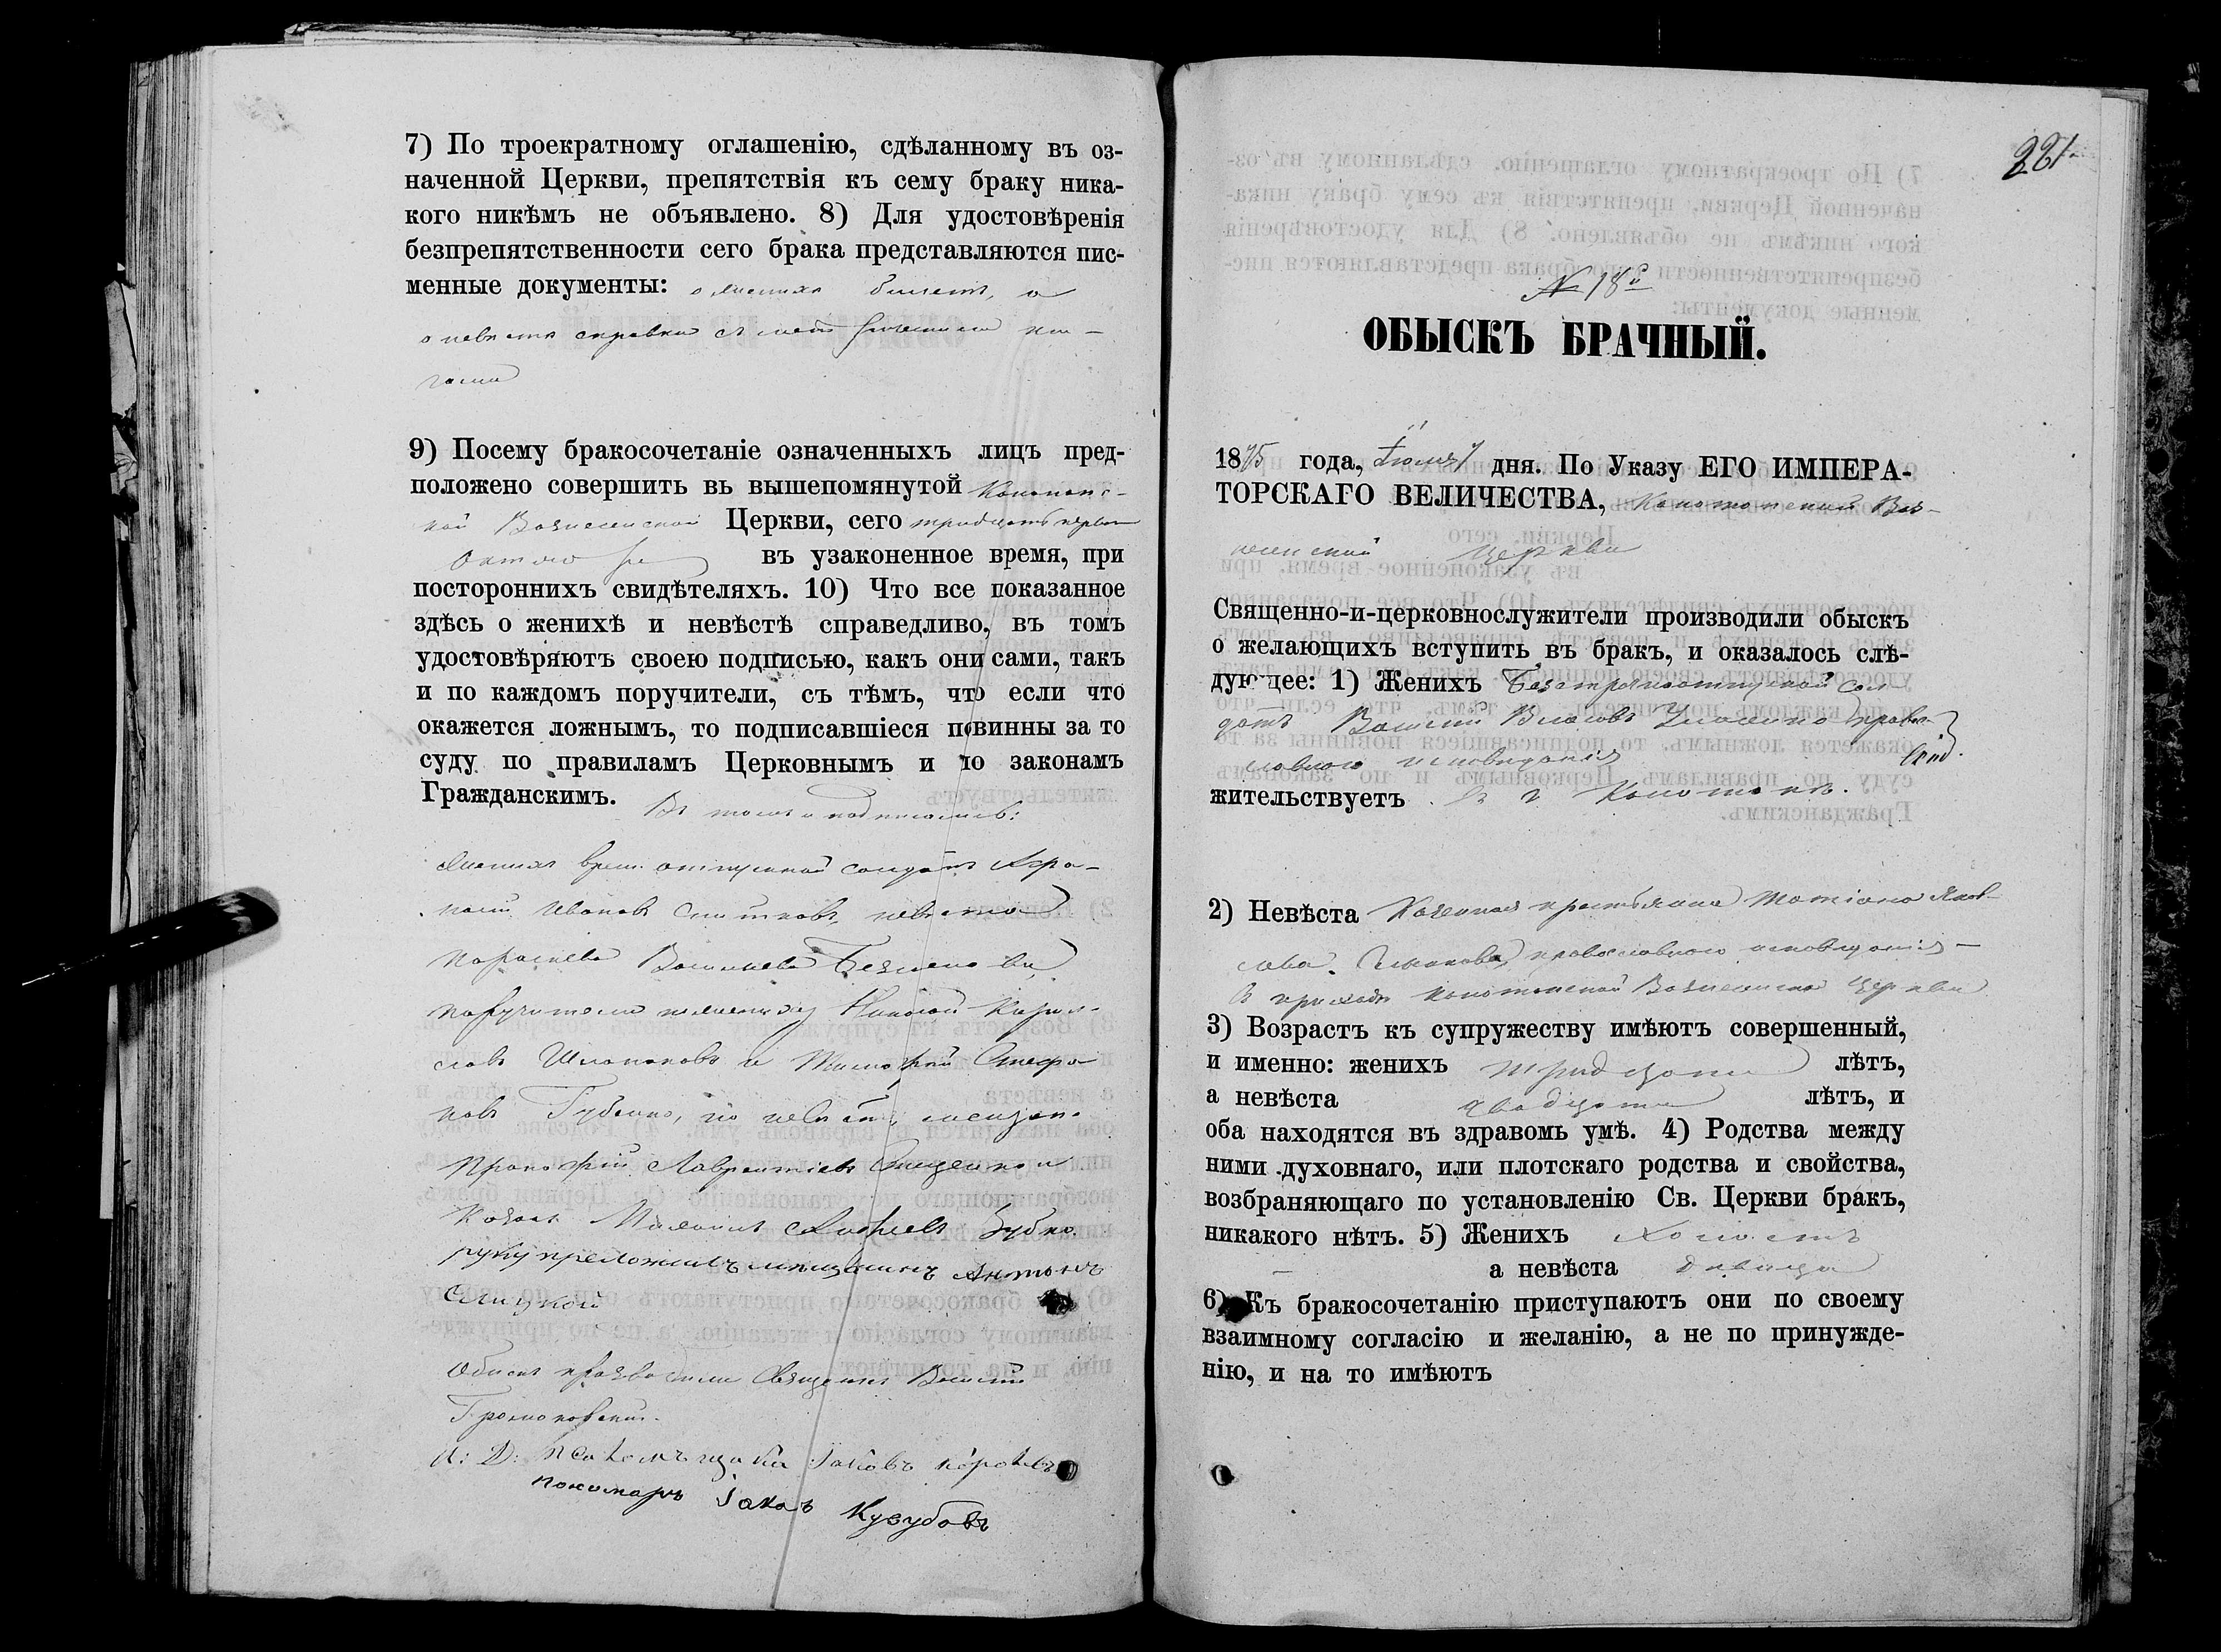 7) По троекратному оглашенію, сдѣланному въ оз-
наченной Церкви, препятствія къ сему браку ника-
кого никѣмъ не объявлено. 8) Для удостовѣренія
безпрепятственности сего брака представляются пис-
менные документы: о женихѣ билетъ, а
о невѣстѣ справка съ метрическими кни-
гами
9) Посему бракосочетаніе означенныхъ лицъ пред-
положено совершить вь вышепомянутой Конотопс-
кой Вознесенской Церкви, сего тридцать перваго
Октября въ узаконенное время, при
постороннихъ свидѣтеляхъ. 10) Что все показанное
здѣсь о женихѣ и невѣстѣ справедливо, въ томъ
удостовѣряютъ своею подписью, какъ они сами, такъ
и по каждомъ поручители, съ тѣмъ, что если что
окажется ложнымъ, то подписавшіеся повинны за то
суду по правиламъ Церковнымъ и по законамъ
Гражданскимъ. Въ томъ и подписались:
Женихъ врем. отпускной солдатъ
Ивановъ невѣста
Васильева
поручители по женихѣ Николай Кирил-
ловъ Шаповаловъ и Тимофей Стефа-
новъ Губенко, по невѣстѣ мещан.
Прокофій Лаврентіевъ и
козакъ Михаилъ Андреевъ Зубко.
руку преложилъ мещанинъ Антонъ
Слицкой
Обыскъ производили Священикъ Василій
И: Д: псаломъщика Іаковъ
пономарь Іаковъ Кузубовъ
221
№ 18й
ОБЫСКЪ БРАЧНЫЙ.
1875 года, Іюля 7 дня. По Указу ЕГО ИМПЕРА-
ТОРСКАГО ВЕЛИЧЕСТВА, Конотопской Воз-
несенской Церкви
Священно-и-церковнослужители производили обыскъ
о желающихъ вступить въ бракъ, и оказалось слѣ-
дующее: 1) Женихъ Безсрочноотпускной сол-
датъ Василій Власовъ правос-
лавного исповѣданія
жительствуетъ въ г Конотопѣ.
2) Невѣста Казенная крестьянка Татіана Яков-
лева православного исповѣданія
въ приходѣ Конотопской Вознесенской Церкви
3) Возрастъ къ супружеству имѣютъ совершенный,
и именно: женихъ тридцати лѣтъ,
а невѣста двадцати лѣтъ, и
оба находятся въ здравомь умѣ. 4) Родства между
ними духовнаго, или плотскаго родства и свойства,
возбраняющаго по установленію Св. Церкви бракъ,
никакого нѣтъ. 5) Женихъ холостъ
а невѣста дѣвица
6) Къ бракосочетанію приступаютъ они по своему
взаимному согласію и желанію, а не по принужде-
нію, и на то имѣютъ